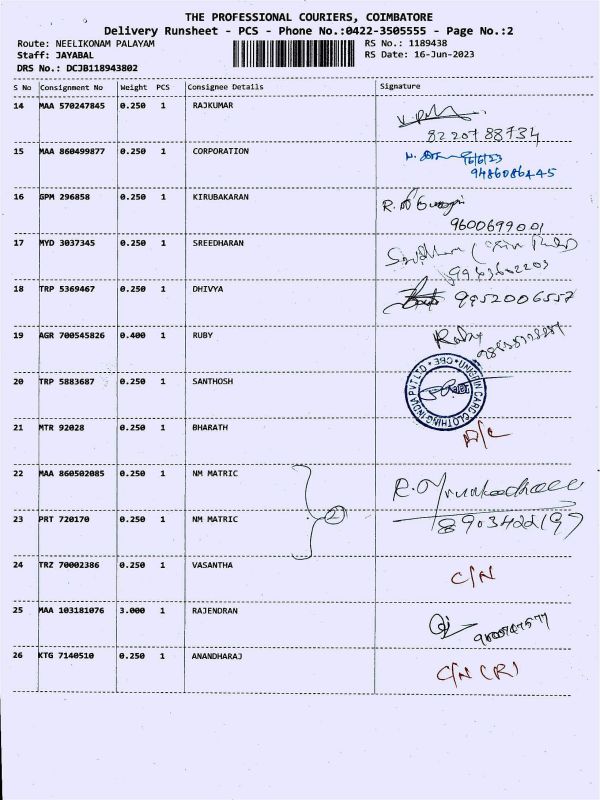 THE PROFESSIONAL COURIERS, COIMBATORE
Delivery Runsheet - PCS - Phone No.:0422-3505555 - Page No.:2
Route: NEELIKONAM PALAYAM RS No.: 1189438
Staff: JAYABAL RS Date: 16-Jun-2023
DRS No.: DCJB118943802
S No Consignment No Weight PCS Consignee Details Signature
14 MAA 570247845 0.250 1 RAJKUMAR
8220788734
15 MAA 860499877 0.250 1 CORPORATION
9486086445
16 GPM 296858 0.250 1 KIRUBAKARAN
9600699001
17 MYD 3037345 0.250 1 SREEDHARAN
18 TRP 5369467 0.250 1 DHIVYA 9952006557
19 AGR 700545826 0.400 1 RUBY Ruby
20 TRP 5883687 0.250 1 SANTHOSH
CARD CLOTHING INDIA PVT LTD CBE
21 MTR 92028 0.250 1 BHARATH
22 MAA 860502085 0.250 1 NM MATRIC
2
23 PRT 720170 0.250 1 NM MATRIC 8903422197
24 TRZ 70002386 0.250 1 VASANTHA C/N
25 MAA 103181076 3.000 1 RAJENDRAN
26 KTG 7140510 0.250 1 ANANDHARAJ C/N (R)